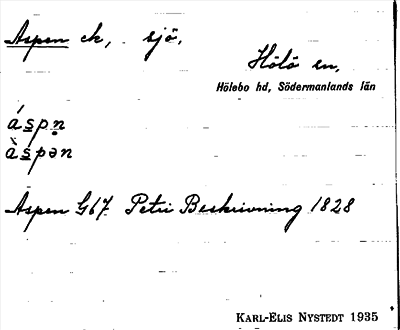 Aspen ek, sjö.
Hölö sn,
Hölebo hd, Södermanlands län
áspn̥
àspən
Aspen G67. Petri Beskrivning 1828
KARL-ELIS NYSTEDT 1935